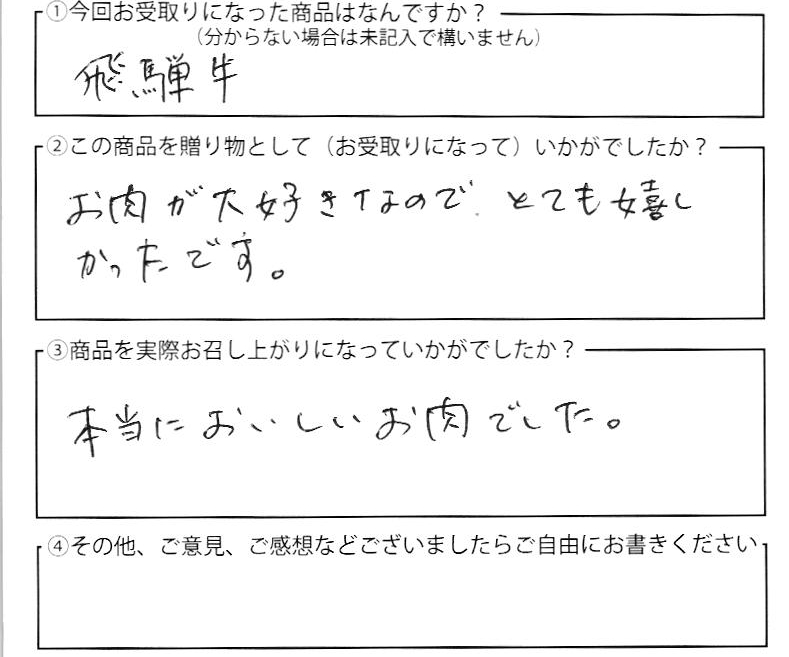 ①今回お受取りになった商品はなんですか？
（分からない場合は未記入で構いません）
飛騨牛
②この商品を贈り物として（お受取りになって）いかがでしたか？
お肉が大好きなので、とても嬉し
かったです。
③商品を実際お召し上がりになっていかがでしたか？
本当においしいお肉でした。
④その他、ご意見、ご感想などございましたらご自由にお書きください